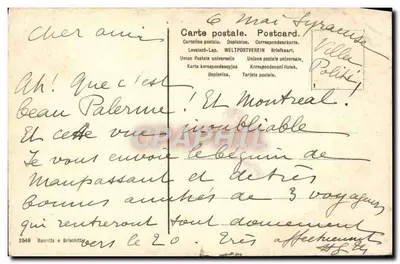 6 Mai Syracuse
Villa
Politi
Cher ami
Carte postale. Postcard.
Cartolina postale. Dopisnica. Correspondenzkarte.
Levelező-Lap. WELTPOSTVEREIN Briefkaart.
Union Postale universelle Unione postale universale.
Karta korespondencyjna Korespondenční lístek.
Dopisnica. Tarjeta postal.
Ah! Que c'est
beau Palerme! Et Montreal.
Et cette vue inoubliable
Je vous envoie le béguin de
Maupassant et de très
bonnes amitiés de 3 voyageurs
qui rentreront tout doucement
vers le 20. Très affectueusement
2546 Ravotto e
delcampe